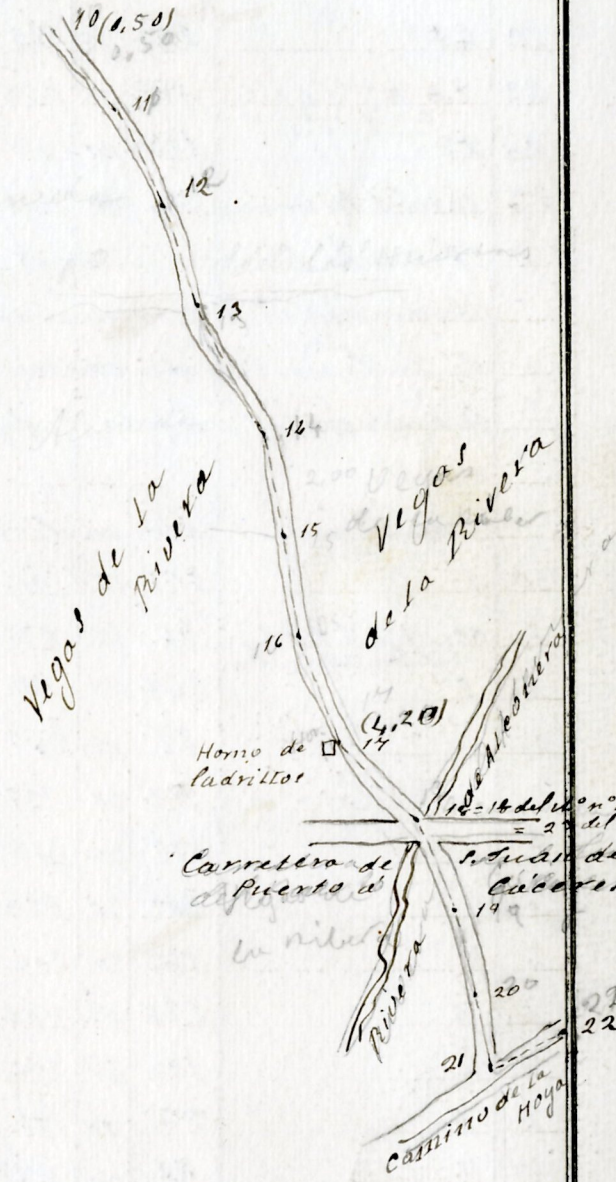 10 (0,50)
0,50
11
12
13
14
15
16
Vegas de la
Rivera
Vegas
de la Rivera
(4,20)
17
Horno de
ladrillos
de Alcónera
18 = 18 del
= 2º del
Carretera de
Puerto a
S. Juan de
Cáceres
19
20
Rivera
21
22
Camino de la
Hoya